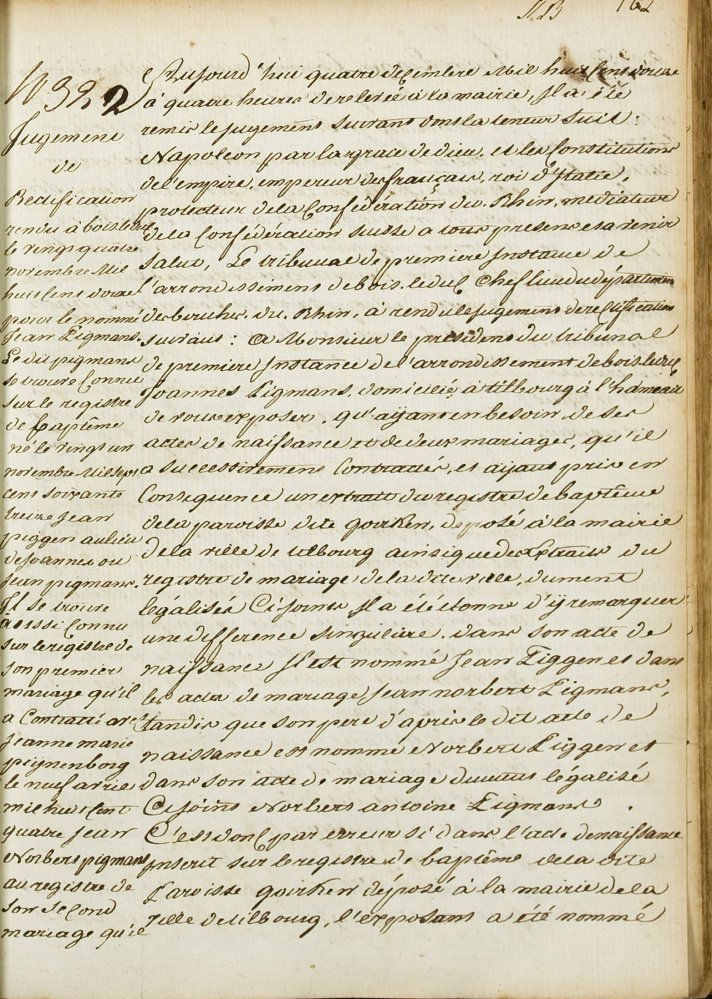 162
N 322
Jugement
de
Rectification
rendu à bois le duc
le vingt quatre
novembre mil
huit cens douze
pour le nommé
Jean Pigmans.
Le dit pigmans
se trouve connu
sur le registre
de baptême
né le vingt un
novembre mil sept
cens soixante
treize Jean
piggen au lieu
de Joannes ou
Jean pigmans.
Il se trouve
aussi connu
sur le registre de
son premier
mariage qu'il
a contracté avec
Jeanne marie
pijnenborg
le neuf
mil huit cent
quatre Jean
Norbert pigmans
au registre de
son second
mariage qu'il
Aujourd'hui quatre decembre mil huit cens douze
à quatre heures de relevée à la mairie, Il a été
remis le jugement suivant dont la teneur suit.
Napoleon par la grace de dieu, et les Constitutions
de l'empire, empereur des français, roi d'Italie,
protecteur de la Confédération du Rhin, mediateur
de la Confédération suisse a tous present et a venir
salut, Le tribunal de premiere Instance de
l'arrondissement de bois le duc Chef lieu du département
des bouches du Rhin, à rendu le jugement de rectification
suivant: a Monsieur le président du tribunal
de premiere Instance de l'arrondissement de bois le duc
Joannes Pigmans, domicilié à tilbourg à l'hameau
de vous exposer. qu'ayant en besoin de ses
actes de naissance et de deux mariages, qu'il
a successivement Contractés, et ayant pris en
Consequence un extrait du registre de baptême
de la paroisse dite goirken, deposé à la mairie
de la ville de tilbourg ainsi que des Extraits du
registre de mariage de la dite ville, dument
legalisés Ci joints Il a été etonné d'y remarquer
une difference singuliere. dans son acte de
naissance Il est nommé Jean Piggen et dans
les actes de mariage Jean norbert Pigmans,
tandis que son pere d'après le dit acte de
naissance est nommé Norbert Piggen et
dans son acte de mariage legalisé
Ci joint Norbert antoine Pigmans.
C'est donc par erreur si dans l'acte de naissance
Inscrit sur le registre de baptême de la dite
Paroisse goirken déposé à la mairie de la
Ville de tilbourg, l'exposant a été nommé